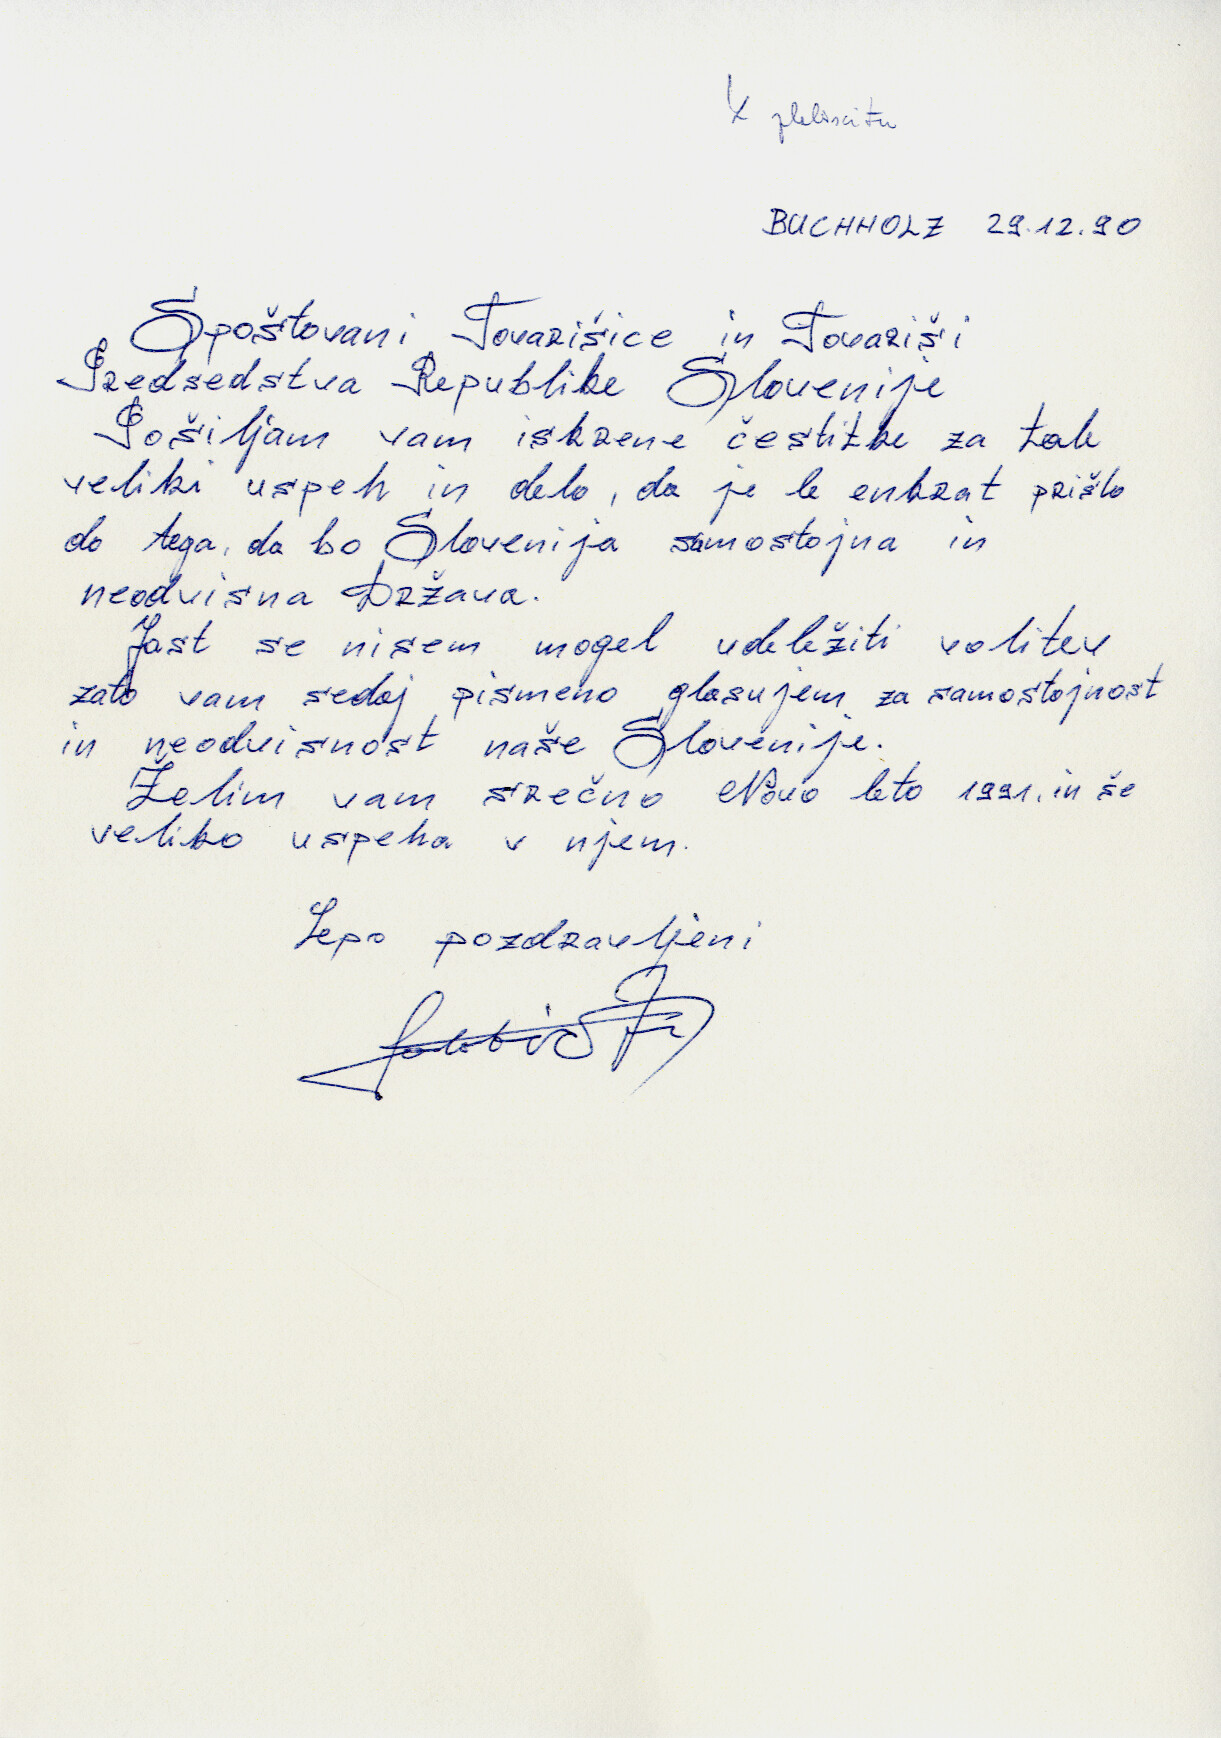 K plebiscitu
BUCHHOLZ 29.12.90
Spoštovani Tovarišice in Tovariši
Predsedstva Republike Slovenije
Pošiljam vam iskrene čestitke za tak
veliki uspeh in delo, da je le enkrat prišlo
do tega, da bo Slovenija samostojna in
neodvisna Država.
Jast se nisem mogel udeležiti volitev
zato vam sedaj pismeno glasujem za samostojnost
in neodvisnost naše Slovenije.
Želim vam srečno Novo leto 1991. in še
veliko uspeha v njem.
Lepo pozdravljeni